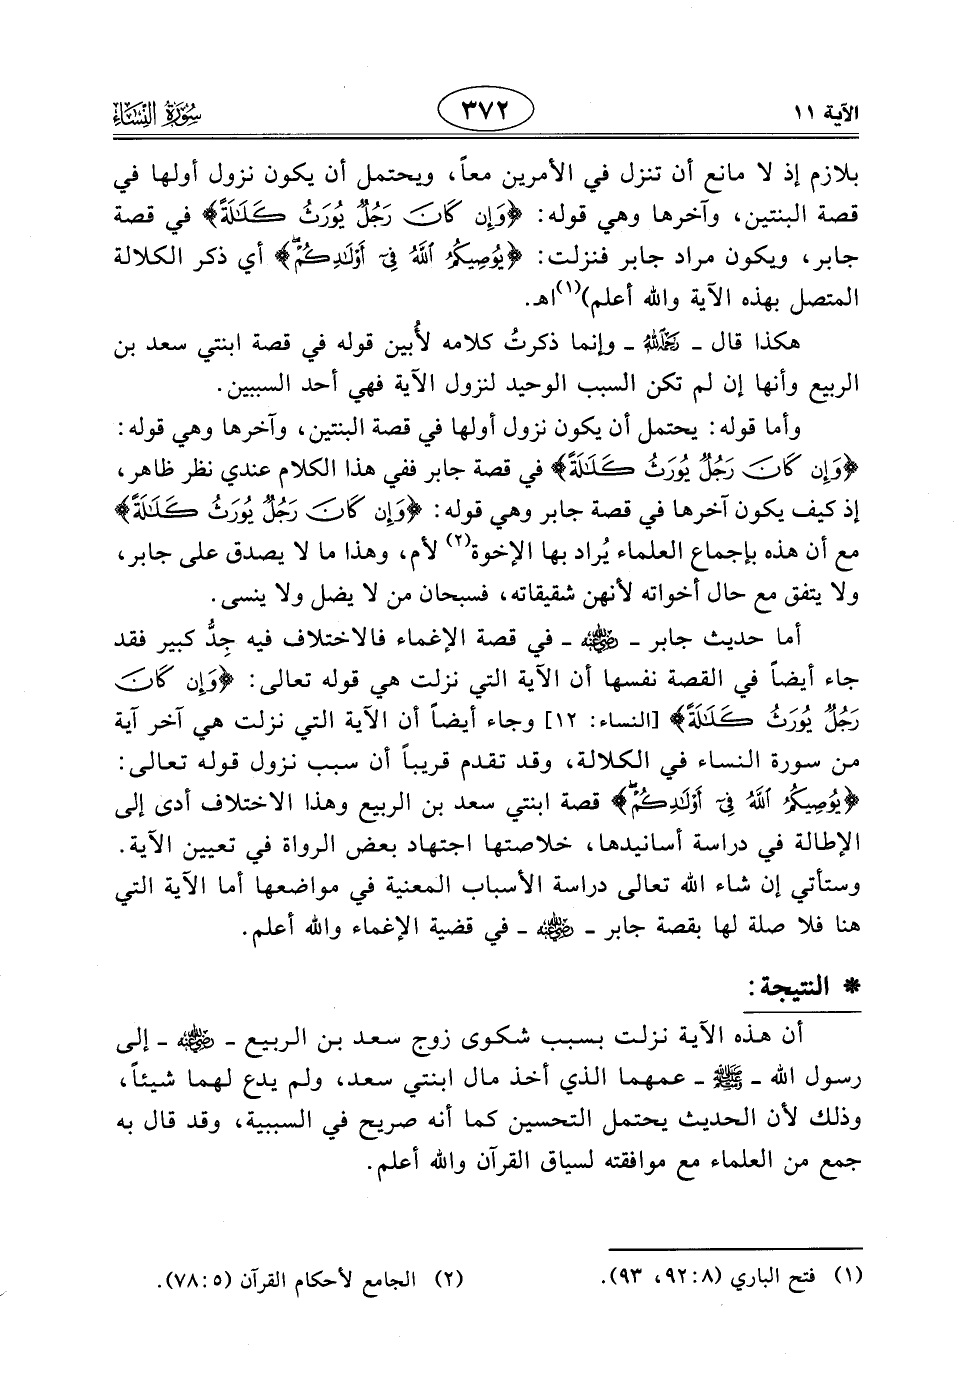 الآية ١١
٣٧٢
سورة النساء
بلازم إذ لا مانع أن تنزل في الأمرين معاً، ويحتمل أن يكون نزول أولها في
قصة البنتين، وآخرها وهي قوله: ﴿وَإِن كَانَ رَجُلٌ يُورَثُ كَلَٰلَةً﴾ في قصة
جابر، ويكون مراد جابر فنزلت: ﴿يُوصِيكُمُ ٱللَّهُ فِىٓ أَوْلَٰدِكُمْۖ﴾ أي ذكر الكلالة
المتصل بهذه الآية والله أعلم)(١)اهـ.
هكذا قال ـ رَحِمَهُ اللهُ ـ وإنما ذكرتُ كلامه لأُبين قوله في قصة ابنتي سعد بن
الربيع وأنها إن لم تكن السبب الوحيد لنزول الآية فهي أحد السببين.
وأما قوله: يحتمل أن يكون نزول أولها في قصة البنتين، وآخرها وهي قوله:
﴿وَإِن كَانَ رَجُلٌ يُورَثُ كَلَٰلَةً﴾ في قصة جابر ففي هذا الكلام عندي نظر ظاهر،
إذ كيف يكون آخرها في قصة جابر وهي قوله: ﴿وَإِن كَانَ رَجُلٌ يُورَثُ كَلَٰلَةً﴾
مع أن هذه بإجماع العلماء يُراد بها الإخوة(٢) لأم، وهذا ما لا يصدق على جابر،
ولا يتفق مع حال أخواته لأنهن شقيقاته، فسبحان من لا يضل ولا ينسى.
أما حديث جابر ـ رضي الله عنه ـ في قصة الإغماء فالاختلاف فيه جِدُّ كبير فقد
جاء أيضاً في القصة نفسها أن الآية التي نزلت هي قوله تعالى: ﴿وَإِن كَانَ
رَجُلٌ يُورَثُ كَلَٰلَةً﴾ [النساء: ١٢] وجاء أيضاً أن الآية التي نزلت هي آخر آية
من سورة النساء في الكلالة، وقد تقدم قريباً أن سبب نزول قوله تعالى:
﴿يُوصِيكُمُ ٱللَّهُ فِىٓ أَوْلَٰدِكُمْۖ﴾ قصة ابنتي سعد بن الربيع وهذا الاختلاف أدى إلى
الإطالة في دراسة أسانيدها، خلاصتها اجتهاد بعض الرواة في تعيين الآية.
وستأتي إن شاء الله تعالى دراسة الأسباب المعنية في مواضعها أما الآية التي
هنا فلا صلة لها بقصة جابر ـ رضي الله عنه ـ في قضية الإغماء والله أعلم.
* النتيجة:
أن هذه الآية نزلت بسبب شكوى زوج سعد بن الربيع ـ رضي الله عنه ـ إلى
رسول الله ـ ﷺ ـ عمهما الذي أخذ مال ابنتي سعد، ولم يدع لهما شيئاً،
وذلك لأن الحديث يحتمل التحسين كما أنه صريح في السببية، وقد قال به
جمع من العلماء مع موافقته لسياق القرآن والله أعلم.
(١) فتح الباري (٨: ٩٢، ٩٣).
(٢) الجامع لأحكام القرآن (٥: ٧٨).